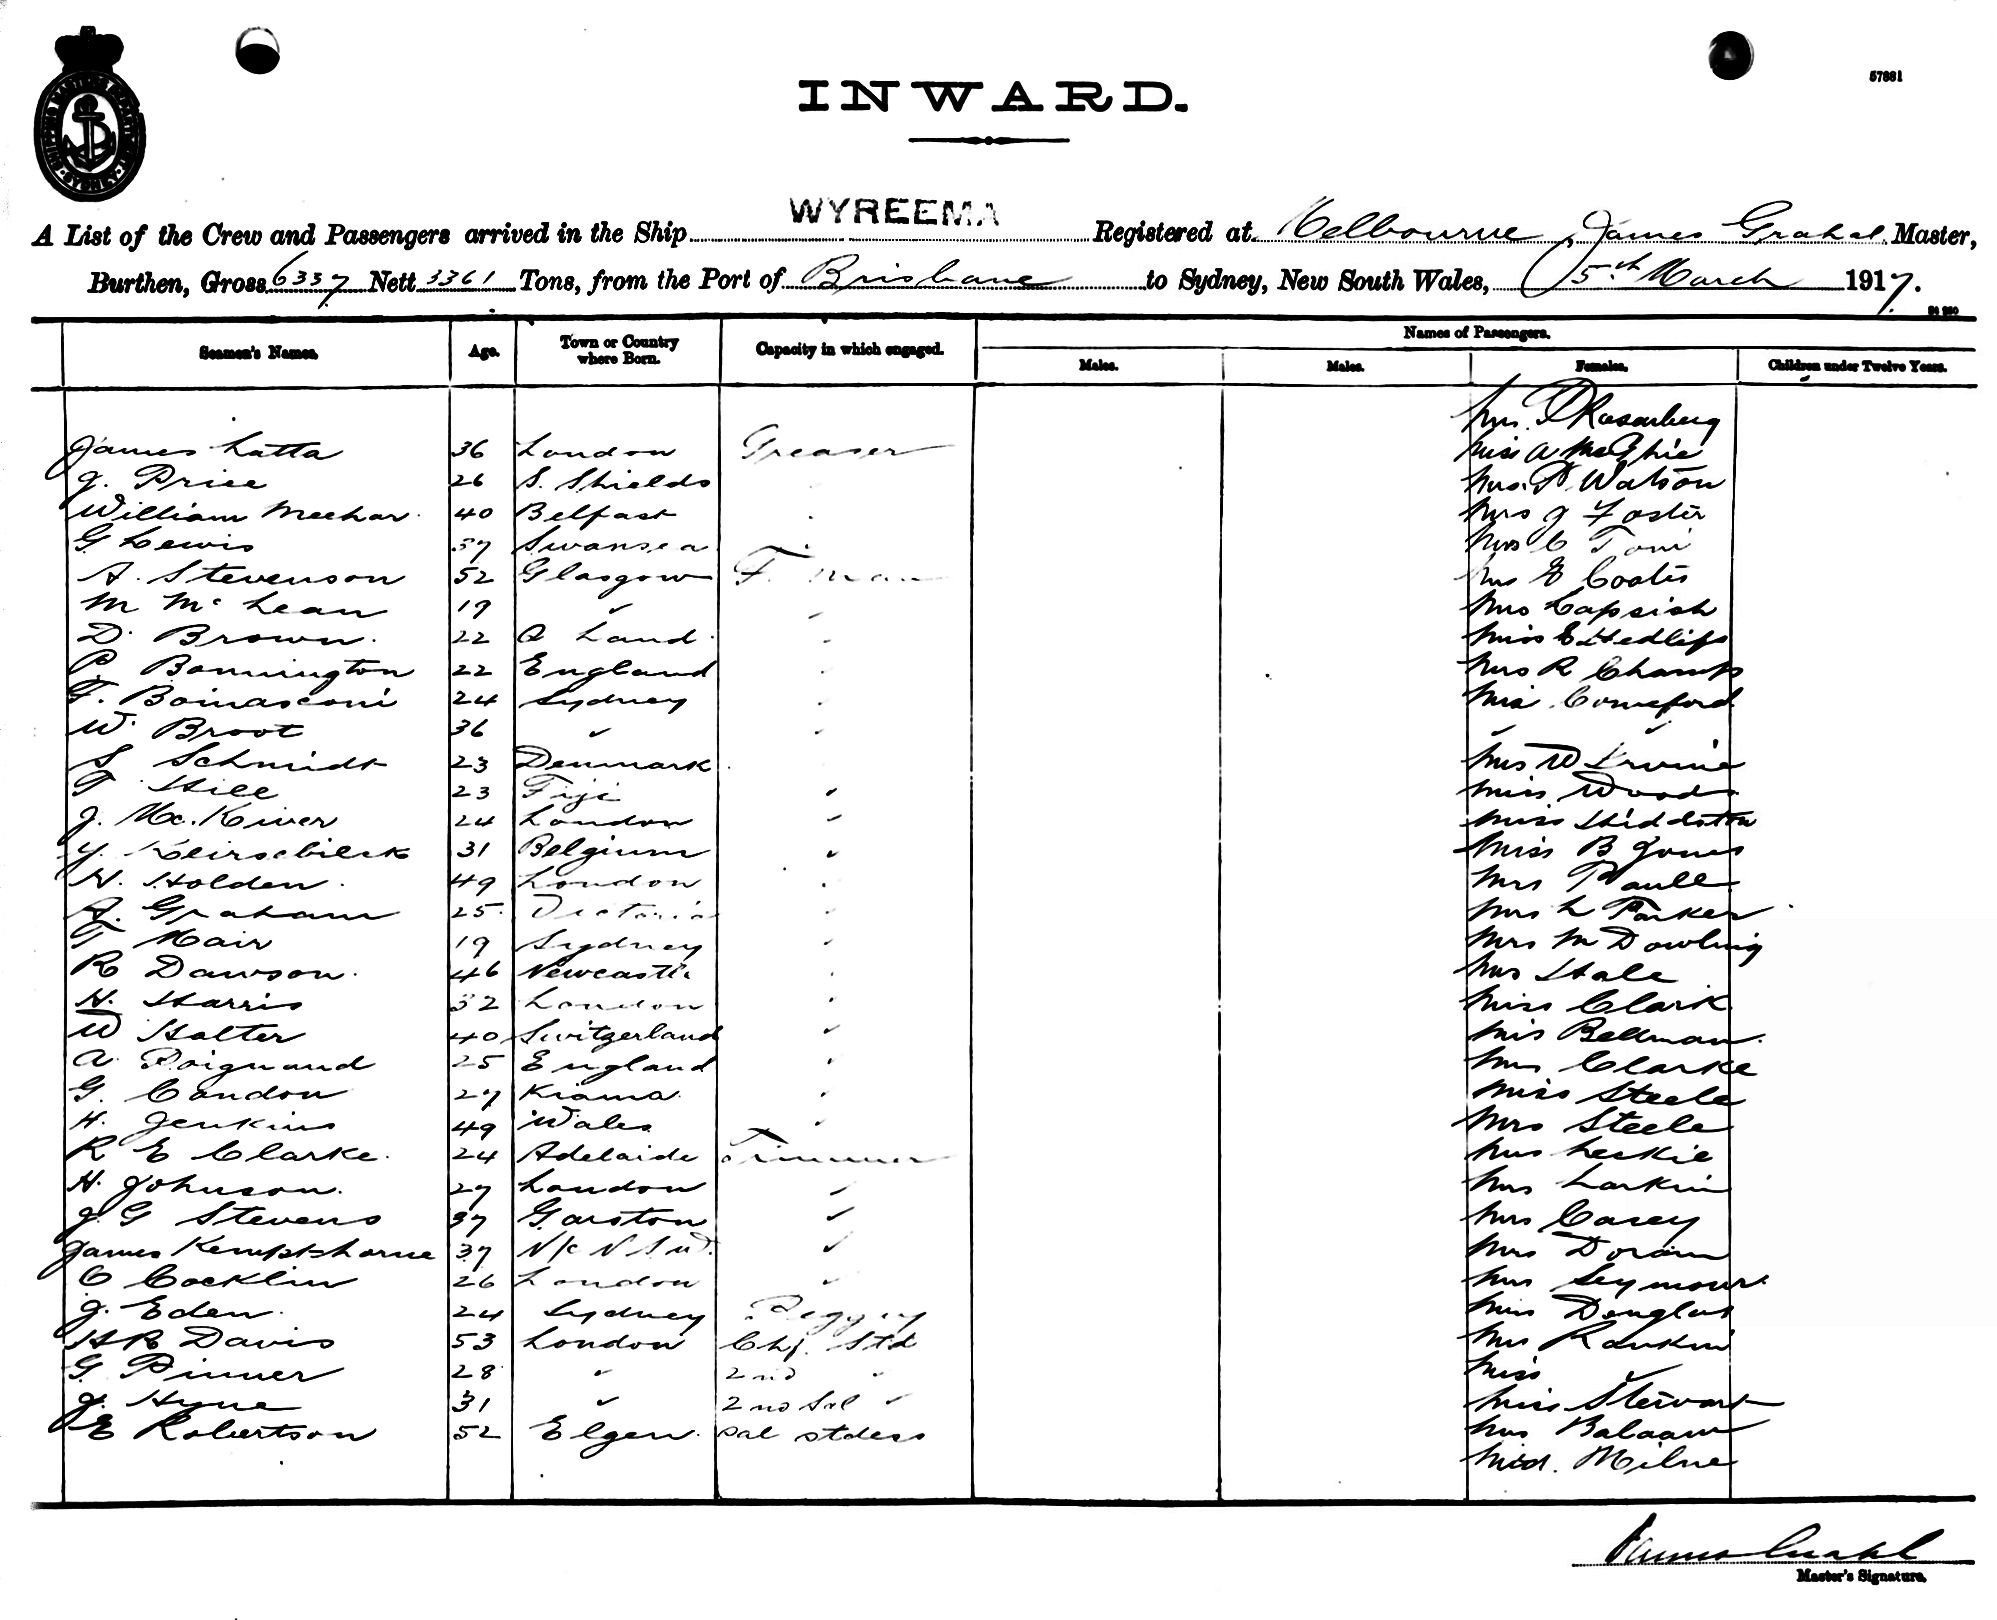 SHIPPING MASTER'S DEPARTMENT · SYDNEY ·
57881
INWARD.
A List of the Crew and Passengers arrived in the Ship WYREEMA Registered at Melbourne, James Grahl Master,
Burthen, Gross 6337 Nett 3361 Tons, from the Port of Brisbane to Sydney, New South Wales, 5th March 1917.
Seamen's Names. Age. Town or Country where Born. Capacity in which engaged. Names of Passengers.
Males. Males. Females. Children under Twelve Years.
Mrs. Rosenberg
James Latta 36 London Greaser Miss A McPhie
J. Price 26 S. Shields Mrs. P. Watson
William Meehar 40 Belfast Mrs J Foster
G Lewis 37 Swansea Mrs C Toni
A. Stevenson 52 Glasgow F. man Mrs E Coates
M McLean 19 " Mrs Capsish
D. Brown 22 Q Land Miss E Hedlifs
P Bonnington 22 England Mrs R Champs
F. Boinasconi 24 Sydney Miss Comeford
W. Broot 36 " " "
S Schmidt 23 Denmark Mrs W Irvine
T Hill 23 Fiji " Miss Woods
J. McKiver 24 London " Miss Hiddston
Y. 31 Belgium " Miss B Jones
H. Holden 49 London " Mrs Paull
A. Graham 25 Victoria " Mrs L Parker
T Mair 19 Sydney " Mrs M Dowling
R Dawson 46 Newcastle " Mrs Hale
H. Harris 32 London " Miss Clark
W Halter 40 Switzerland " Miss Bellman
A Poignand 25 England " Mrs Clarke
G. Condon 27 Kiama " Miss Steele
H. Jenkins 49 Wales " Mrs Steele
R E Clarke 24 Adelaide Trimmer Mrs Leskie
H. Johnson 27 London " Mrs Larkin
J G Stevens 37 Garston " Mrs Casey
James Kempthorne 37 N/c N.S.W. " Mrs Doram
C Cocklin 26 London " Mrs Seymour
J. Eden 24 Sydney Peggy Miss Douglas
H R Davis 53 London Chf. Std Mrs Rankin
G. Pinner 28 " 2nd " Miss "
J. Hyne 31 " 2nd Sal " Miss Stewart
E Robertson 52 Elgen Sal stdess Mrs Balaam
Milne
James Grahl
Master's Signature.